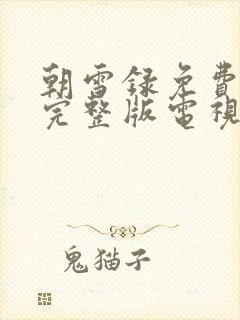 朝雪録免費
完整版電視
鬼猫子